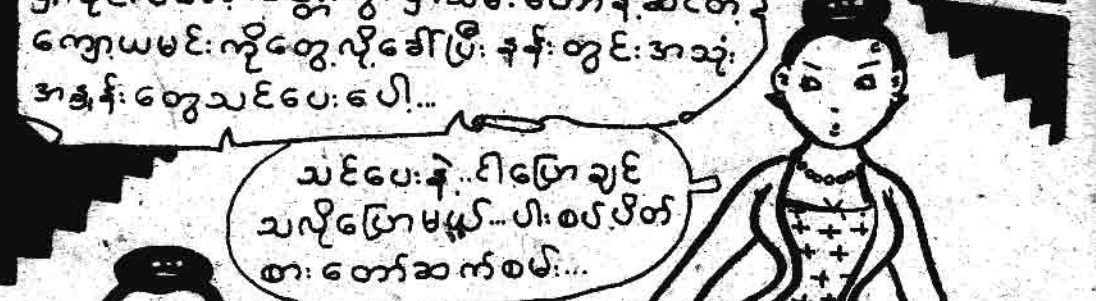 ကျော့ယမင်းကိုတွေ့လို့ခေါ်ပြီး နန်းတွင်းအသုံး
အနှုန်းတွေသင်ပေးပေါ့...
သင်ပေးနဲ့..ငါပြောချင်
သလိုပြောမယ်...ပါးစပ်ပိတ်
စားတော်ဆက်စမ်း...